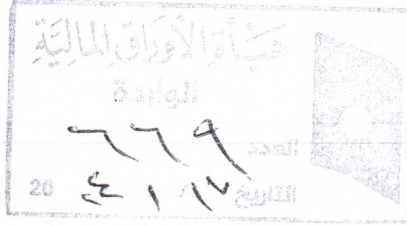 هيئة الأوراق المالية
الواردة
العدد ٦٦٩
التاريخ ١٧ / ١ / 20